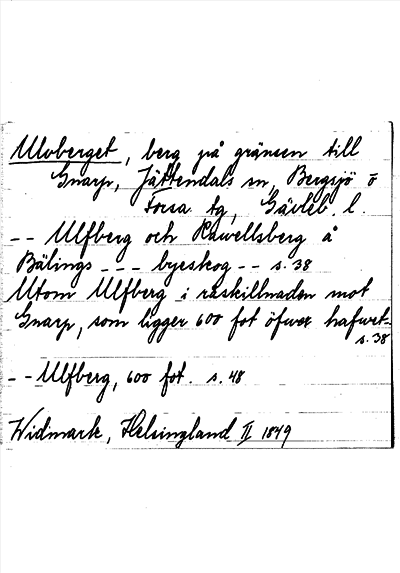 Ulvberget, berg på gränsen till
Gnarp, Jättendals sn, Bergsjö o
Forsa tg, Gävleb. l.
-- Ulfberg och Hawellsberg å
Bälings --- byeskog -- s. 38
Utom Ulfberg i råskillnaden mot
Gnarp, som ligger 600 fot öfwer hafwet-
s. 38
-- Ulfberg, 600 fot. s. 48
Widmark, Helsingland II 1849